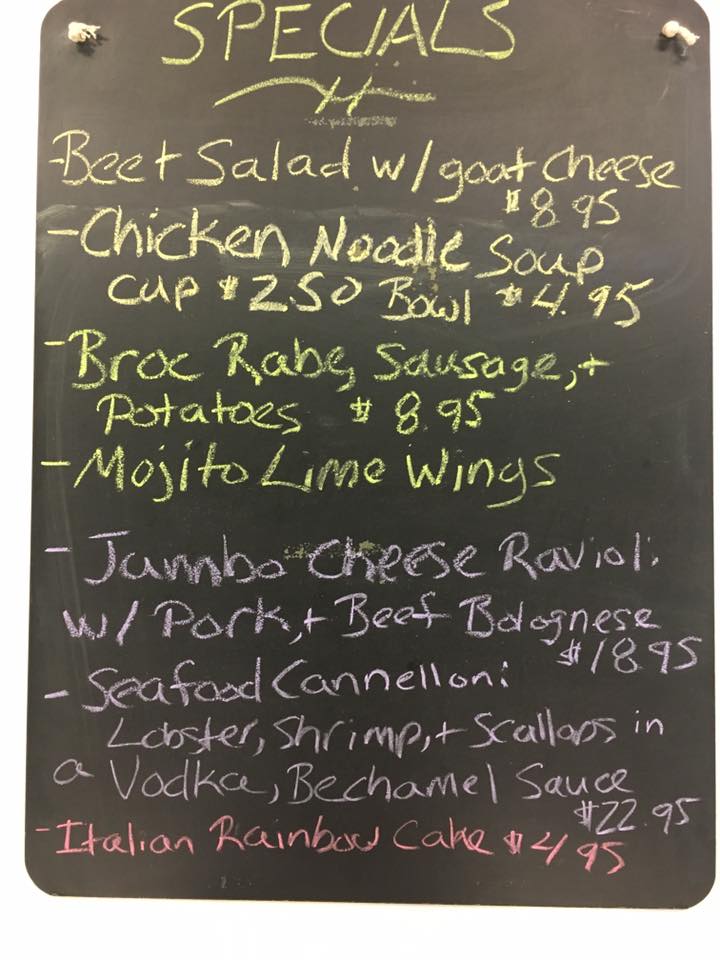 SPECIALS
-Beet Salad w/goat cheese
$8.95
-Chicken Noodle Soup
cup $2.50 Bowl $4.95
-Broc Rabe, Sausage,+
Potatoes $8.95
-Mojito Lime Wings
-Jumbo Cheese Ravioli
w/ Pork,+ Beef Bolognese
$18.95
-Seafood Cannelloni
Lobster, Shrimp,+ Scallops in
a Vodka, Bechamel Sauce
$22.95
-Italian Rainbow Cake $4.95